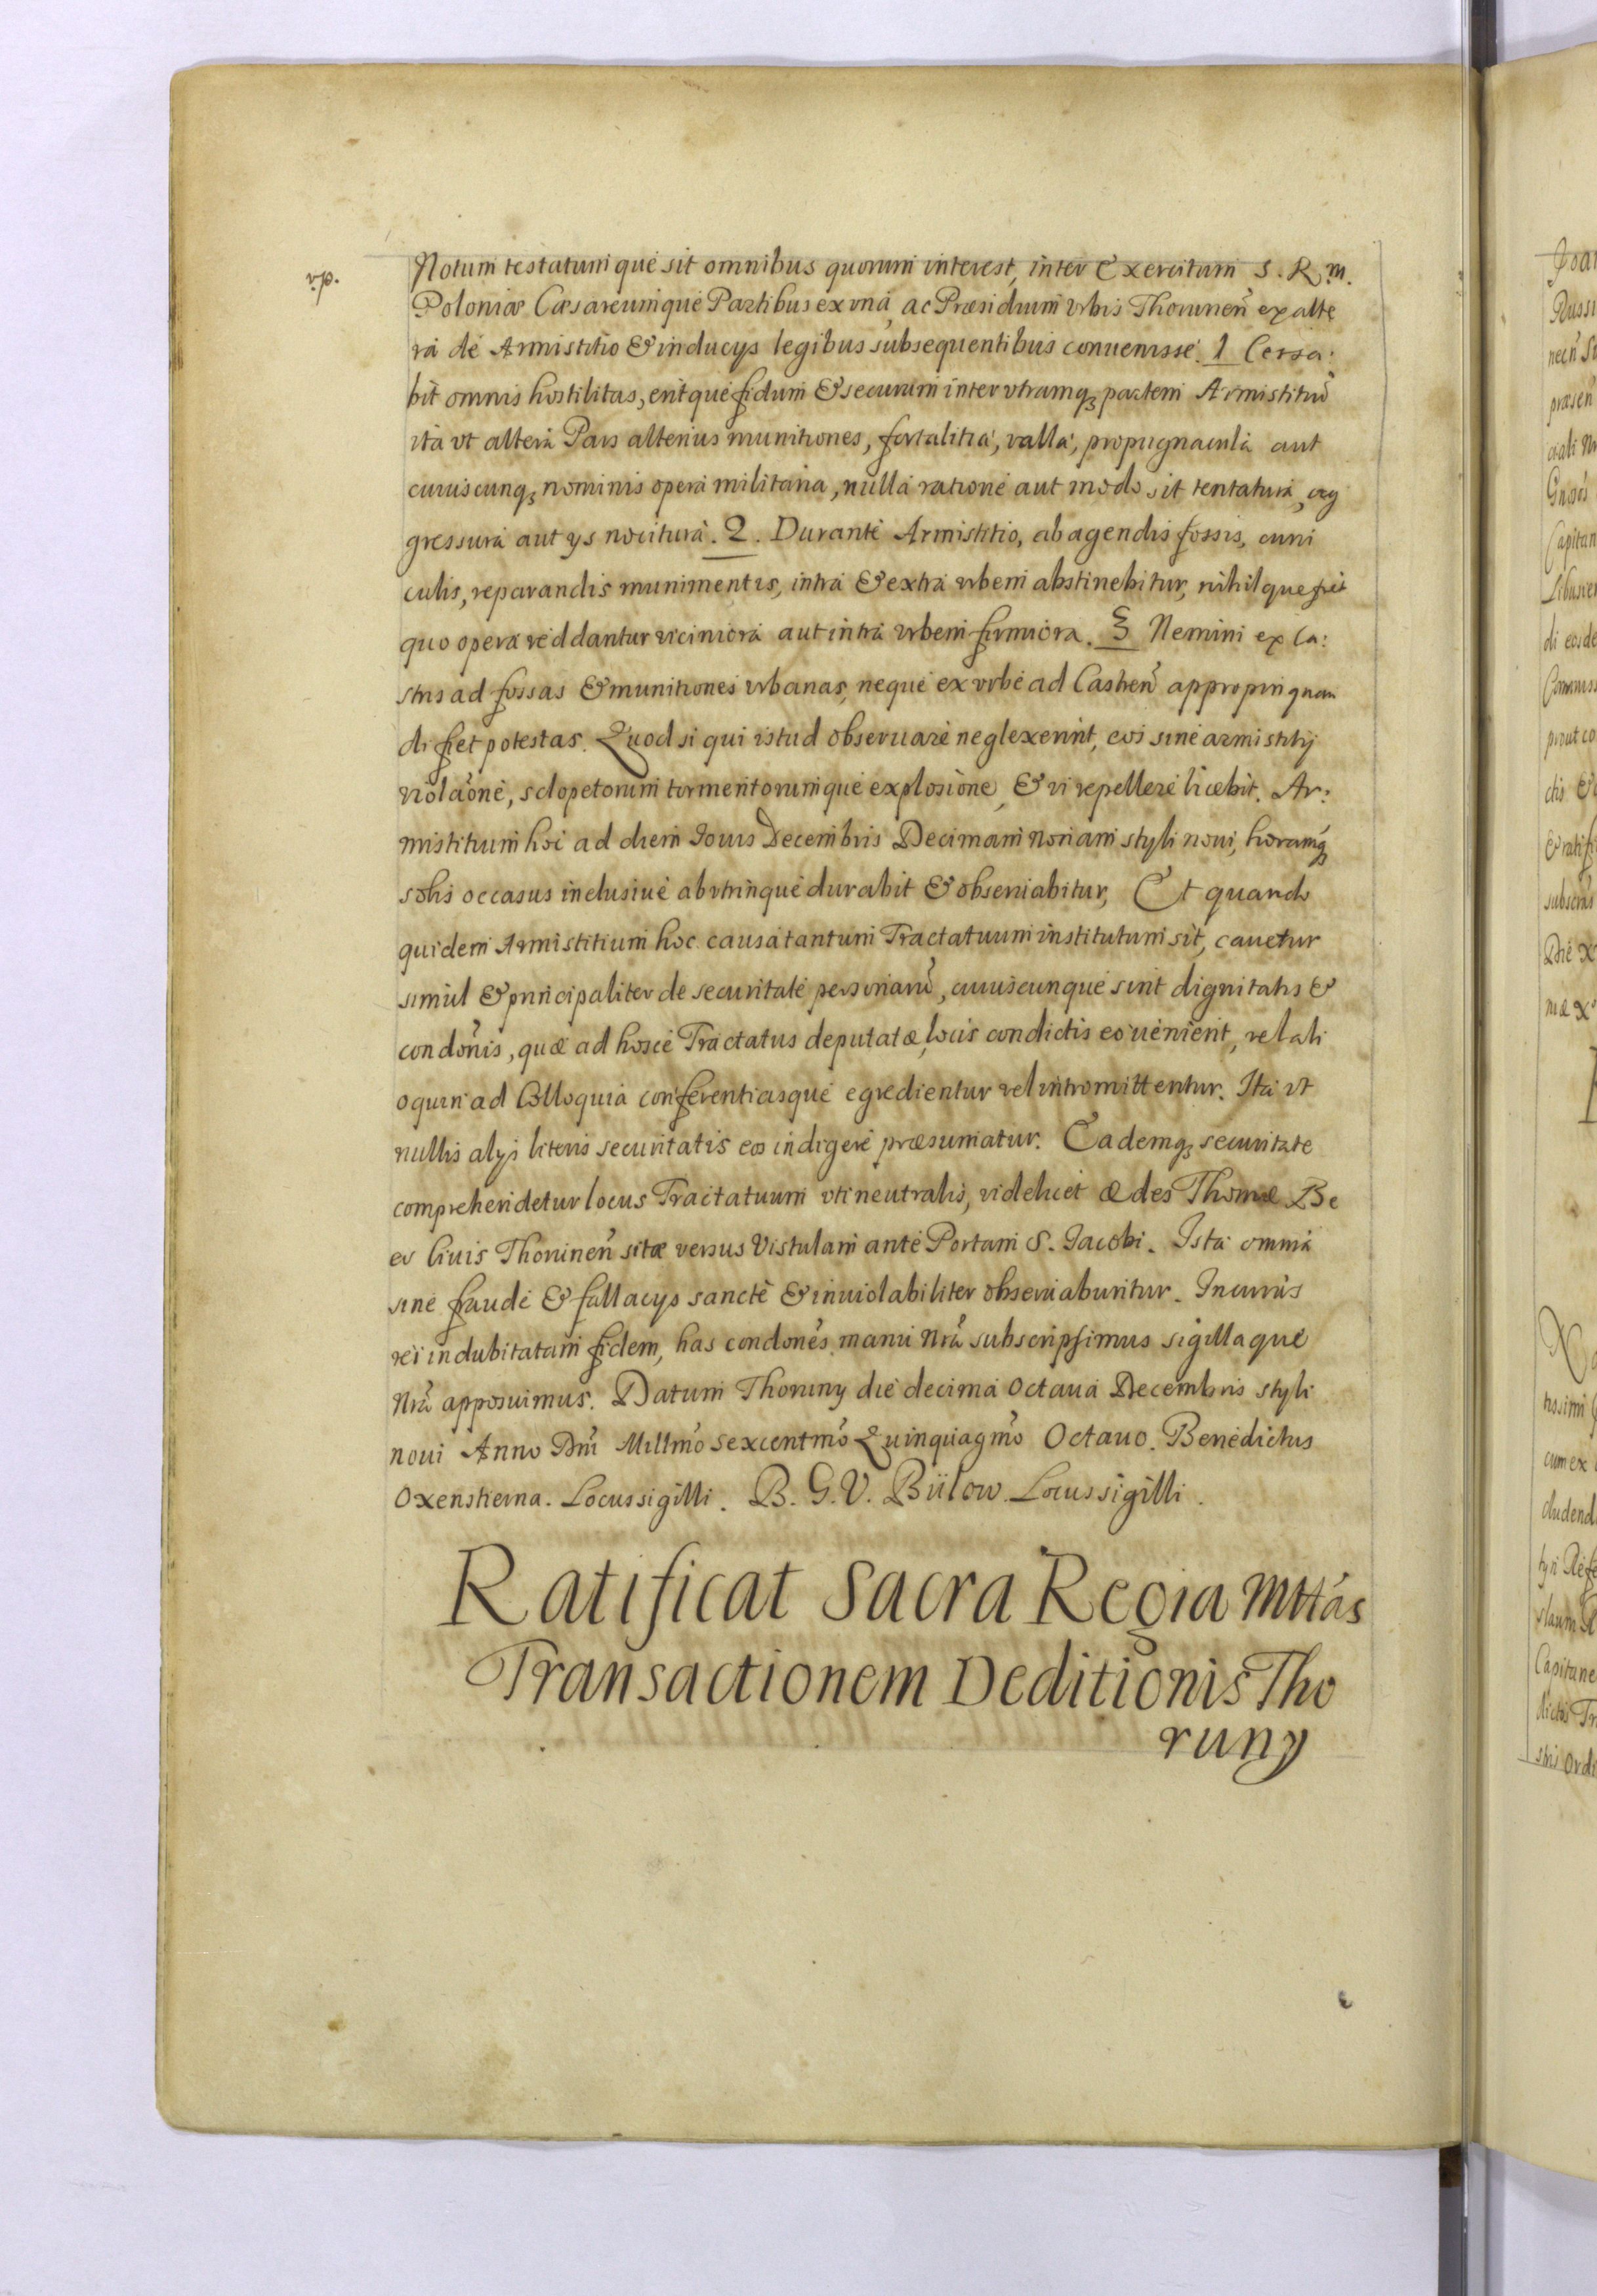 v.p.
Notum testatumque sit omnibus quorum interest, inter Exercitum S. R. M.
Poloniæ Cæsareumque Partibus ex vna, ac Præsidium vrbis Thorunen̄ ex alte
ra de Armistitio & inducys legibus subsequentibus conuenisse. 1 Cessa:
bit omnis hostilitas, eritque fidum & securum inter vtramqꝫ partem Armistitiū
ita vt altera Pars alterius munitiones, fortalitia, valla, propugnacula aut
cuiuscunqꝫ nominis opera militaria, nulla ratione aut modo sit tentatura, ag
gressura aut ys nocitura. 2. Durante Armistitio, ab agendis fossis, cuni
culis, reparandis munimentis, intra & extra vrbem abstinebitur, nihilque fiet
quo opera reddantur viciniora aut intra vrbem firmiora. 3 Nemini ex Ca:
stris ad fossas & munitiones vrbanas, neque ex vrbe ad Castren̄ appropinquan
di fiet potestas. Quod si qui istud obseruare neglexerint, eos sine armistity
violaōne, sclopetorum tormentorumque explosione, & vi repellere licebit. Ar:
mistitium hoc ad diem Iouis Decembris Decimam nonam styli noui, horamqꝫ
solis occasus inclusiue ab vtrinque durabit & obseruabitur, Et quando
quidem Armistitium hoc causa tantum Tractatuum institutum sit, cauetur
simul & principaliter de securitate personarū, cuiuscunque sint dignitatis &
condōnis, quæ ad hosce Tractatus deputatæ, locis condictis eo uenient, vel ali
oquin ad Colloquia conferentiasque egredientur vel intromittentur. Ita vt
nullis alys literis securitatis eos indigere præsumatur. Eademqꝫ securitate
comprehendetur locus Tractatuum vti neutralis, videlicet ædes Thomæ Be
er Ciuis Thorunen̄ sitæ versus Vistulam ante Portam S. Jacobi. Ista omnia
sine fraude & fallacys sancte & inuiolabiliter obseruabuntur. In cuius
rei indubitatam fidem, has condōnes manu nrā subscripsimus sigillaque
nrā apposuimus. Datum Thoruny die decima Octaua Decembris styli
noui Anno Dn̄i Millmō sexcentmō Quinquagmō Octauo. Benedictus
Oxenstierna. Locus sigilli. B. G. V. Bülow. Locus sigilli.
Ratificat Sacra Regia Mttās
Transactionem Deditionis Tho
runy